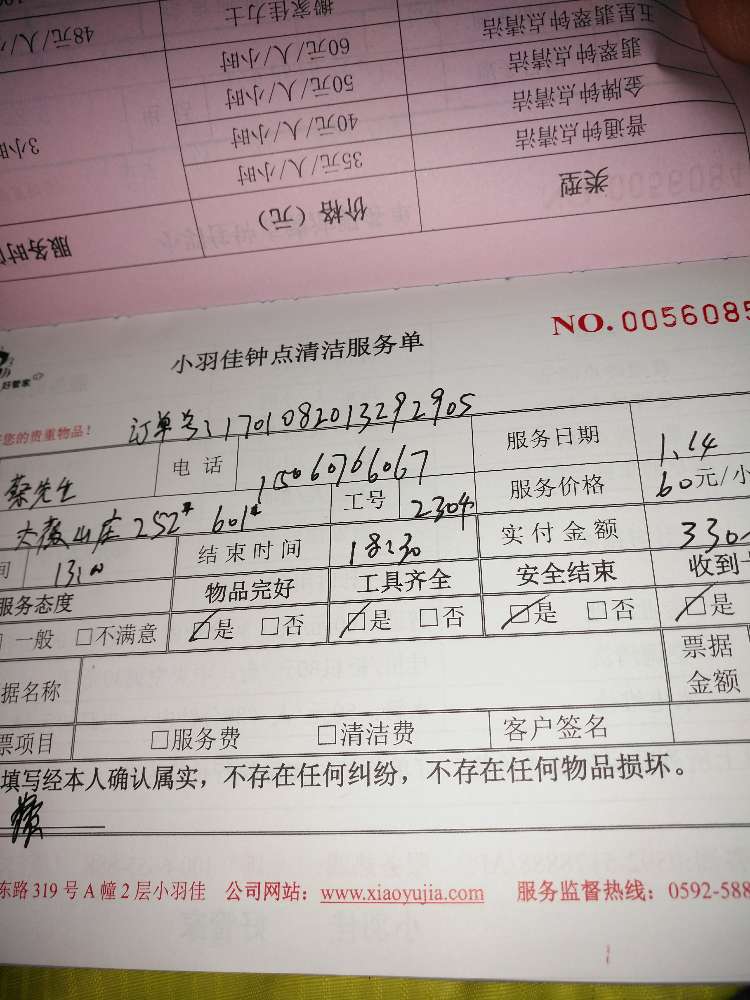 服务时
价格（元）
类型
35元/人/小时
普通钟点清洁
3小
40元/人/小时
金牌钟点清洁
50元/人/小时
翡翠钟点清洁
60元/人/小时
五星翡翠钟点清洁
48元/人/小
搬家佳力士
NO. 0056085
小羽佳钟点清洁服务单
好管家
您的贵重物品！
订单号：1701082013292905
蔡先生 电话 15060766067 服务日期 1.14
山庄252# 601# 工号 2304 服务价格 60元/小
间 13:00 结束时间 18:30 实付金额 330
服务态度 物品完好 工具齐全 安全结束 收到
□一般 □不满意 □是 □否 □是 □否 □是 □否 □是
据名称 票据金额
票项目 □服务费 □清洁费 客户签名
填写经本人确认属实，不存在任何纠纷，不存在任何物品损坏。
东路319号A幢2层小羽佳 公司网站：www.xiaoyujia.com 服务监督热线：0592-588